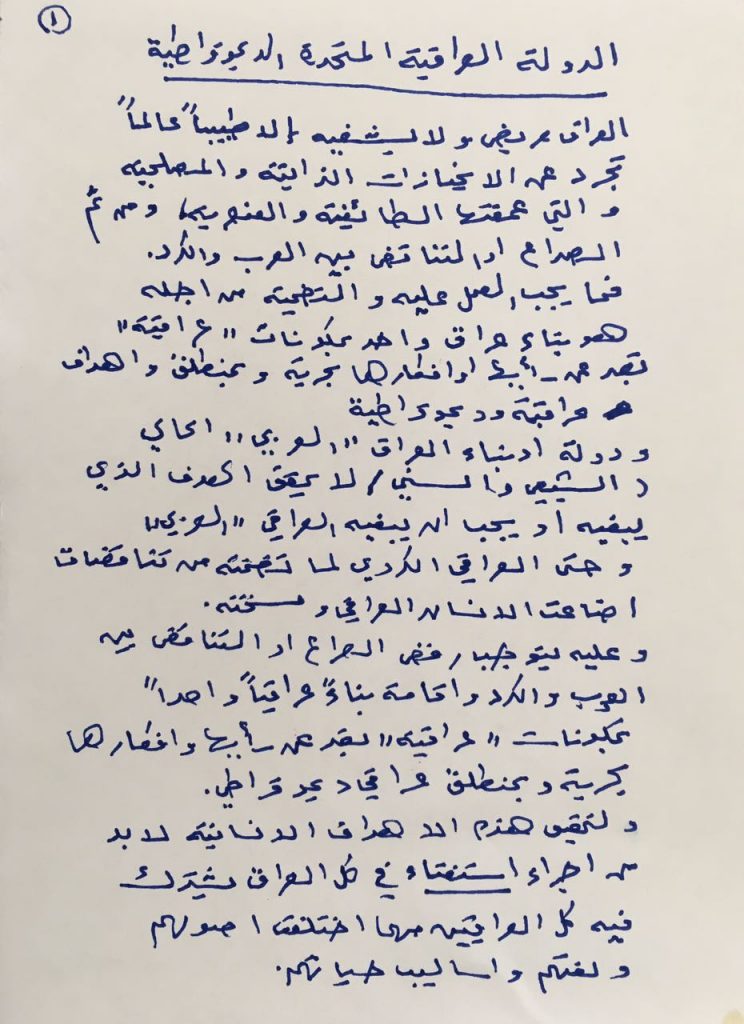 ١
الدولة العراقية المتحدة الديموقراطية
العراق مريض ولا يشفيه إلا طبيباً عالماً
تجرد عن الانحيازات الذاتية والمصلحية
والتي عمقتها الطائفية والعنصرية، ومن ثم
الصراع او التناقض بين العرب والكرد.
فما يجب العمل عليه والتضحية من اجله
هو بناء عراق واحد بمكونات "عراقية"
تعبر عن رأيها وافكارها بحرية وبمنطلق واهداف
عراقية وديموقراطية
ودولة او بناء العراق "العربي" الحالي
(الشيعي والسني) لا يحقق الهدف الذي
يبغيه او يجب ان يبغيه العراقي "العربي"
وحتى العراقي الكردي لما تضمنته من تناقضات
اضاعت الانسان العراقي و
وعليه يتوجب رفض الصراع او التناقض بين
العرب والكرد واقامة بناءً عراقياً واحداً
بمكونات "عراقية" تعبر عن رأيها وافكارها
بحرية وبمنطلق عراقي ديموقراطي.
ولتحقيق هذه الاهداف الانسانية لابد
من اجراء استفتاء في كل العراق يشترك
فيه كل العراقيين مهما اختلفت اصولهم
ولغتهم واساليب حياتهم.